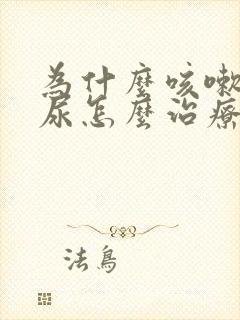 為什麼咳嗽
尿怎麼治療
法鳥